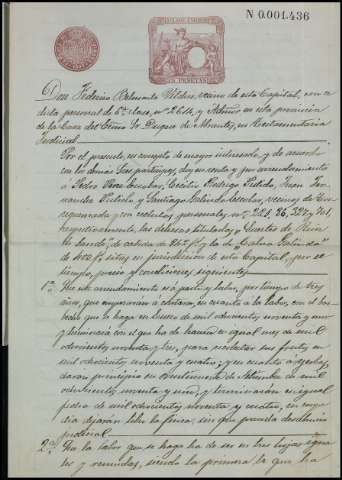 N 0.001.436
PESETAS
Don Federico Belmonte Vilches, vecino de esta Capital, con cé
dula personal de clase, nº 2614, y Administrador en esta provincia
de la Casa del Excmo Sr Duque de Abrantes, en
Judicial
Por el presente, en concepto de mayor interesado, y de acuerdo
con los demas participes, doy en renta y por arrendamiento
á Pedro Perez Escobar, Cecilio Rodrigo Pulido, Juan Fer
nandez Pulido, y Santiago Galindo Escobar, vecinos de
y con cedulas personales nº 221, 26, 227 y 741,
respectivamente, las dehesas tituladas de
de cabida de 247 fs y la de
de 402 fs, sitas en jurisdiccion de esta Capital, por el
tiempo, precio y condiciones siguientes
1ª Este arrendamiento es á pasto y labor, por tiempo de tres
años, que empezarán á contarse, en cuanto á la labor, con el bar
becho que se haga en Enero de mil ochocientos noventa y uno
y terminará con el que ha de hacerse en igual mes de mil
ochocientos noventa y tres, para recolectar sus frutos en
mil ochocientos noventa y cuatro; y en cuanto á yerbas,
darán principio en veintinueve de Setiembre de mil
ochocientos noventa y uno, y terminarán en igual
fecha de mil ochocientos noventa y cuatro, en cuyo
dia dejarán libre la finca, sin que preceda desahucio
judicial.
2ª En la labor que se haga ha de ser en tres hojas igua
les y reunidas, siendo la primera la que ha